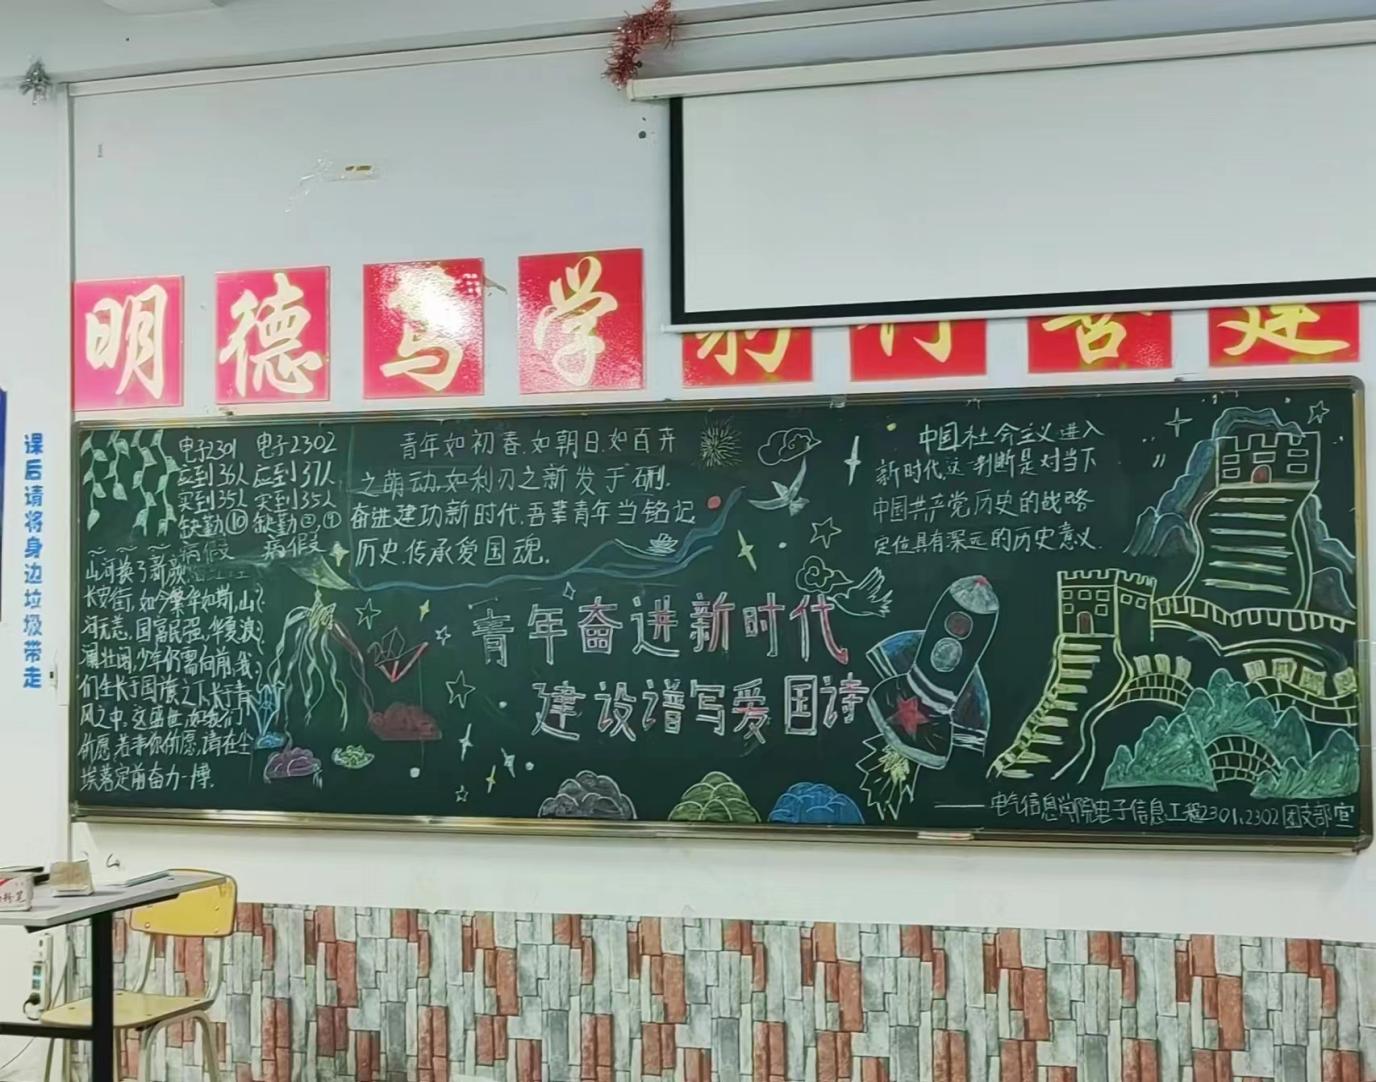 明德笃学
课后请将身边垃圾带走
电子2301 电子2302
应到36人 应到37人
实到35人 实到35人
缺勤⑩ 缺勤②⑨
病假 病假
青年如初春,如朝日,如百卉
之萌动,如利刃之新发于硎,
奋进建功新时代,吾辈青年当铭记
历史,传承爱国魂。
中国社会主义进入
新时代,这一判断是对当下
中国共产党历史的战略
定位具有深远的历史意义.
山河换了新颜
长安街,如今繁华如斯,山
河无恙,国富民强,华夏波
澜壮阔,少年仍需向前,我
们生长于国旗之下,长于春
风之中,这盛世,如我们
所愿,若事你所愿,请在尘
埃落定前奋力一博.
青年奋进新时代
建设谱写爱国诗
——电气信息学院电子信息工程2301、2302团支部宣